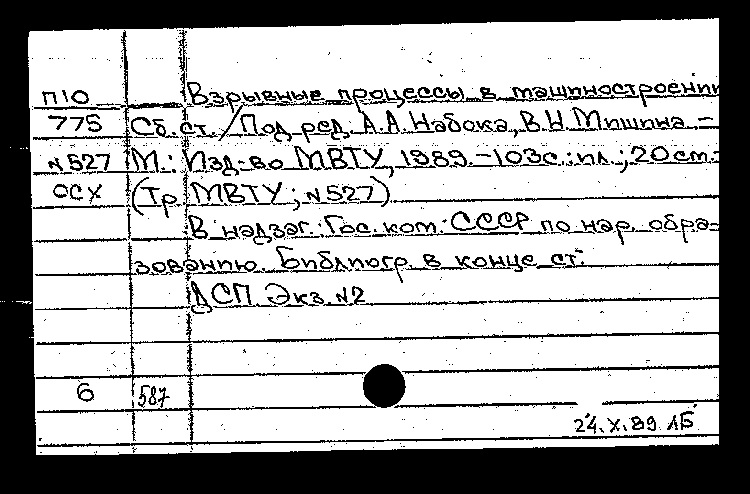 П10 Взрывные процессы в машиностроении
775 Сб. ст. / Под ред. А.А. Набока, В.Н. Мишина –
N527 М.: Изд-во МВТУ, 1989. – 103с.: ил.; 20см.-
ОСХ (Тр. МВТУ; N527)
В надзаг.: Гос. ком. СССР по нар. обра-
зованию. Библиогр. в конце ст.
ДСП Экз. N2
6 587
24.X.89 ЛБ